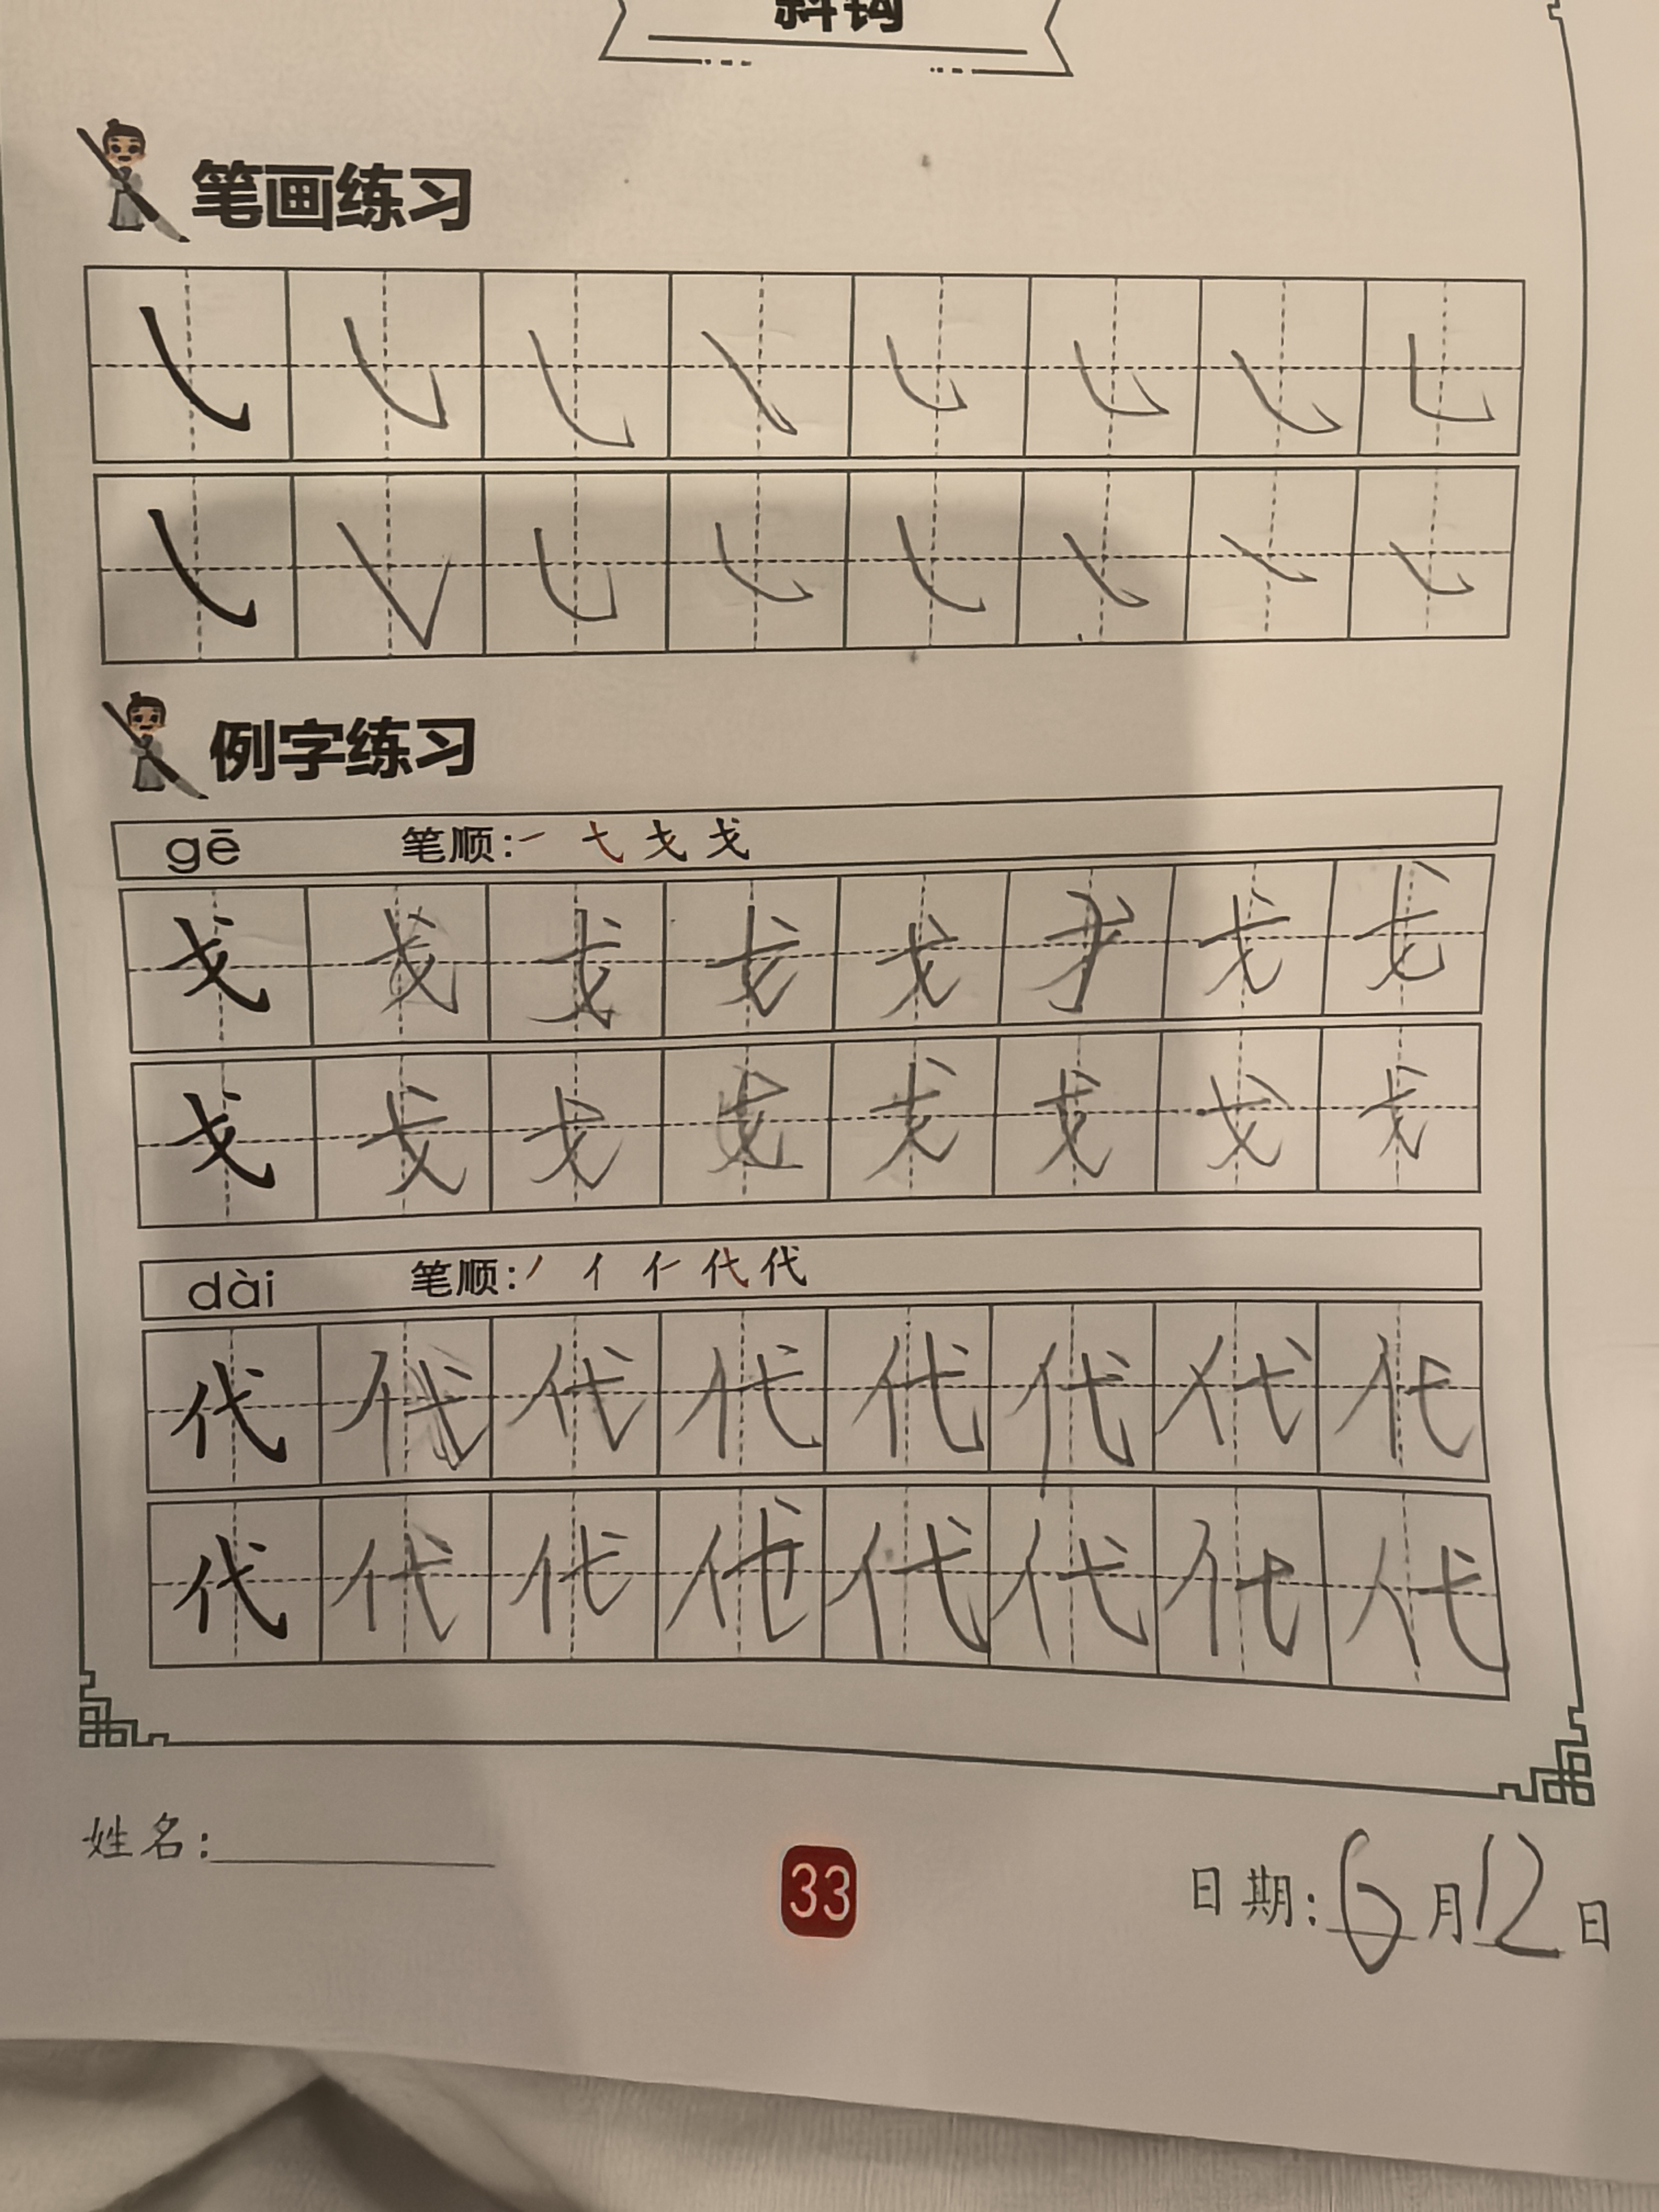 斜钩
笔画练习
㇂ ㇂ ㇂ ㇂ ㇂ ㇂ ㇂ ㇂
㇂ ㇂ ㇂ ㇂ ㇂ ㇂ ㇂ ㇂
例字练习
gē 笔顺:㇀ 戈
戈 戈 戈 戈 戈 戈 戈 戈
戈 戈 戈 戈 戈 戈 戈 戈
dài 笔顺:丿 亻 代 代
代 代 代 代 代 代 代 代
代 代 代 代 代 代 代 代
姓名:
33
日期:6月12日